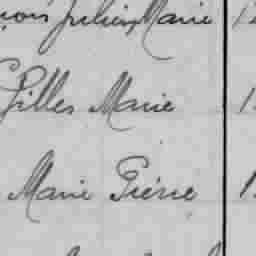 Julien Marie 1
Gilles Marie 1
Marie Pierre 1